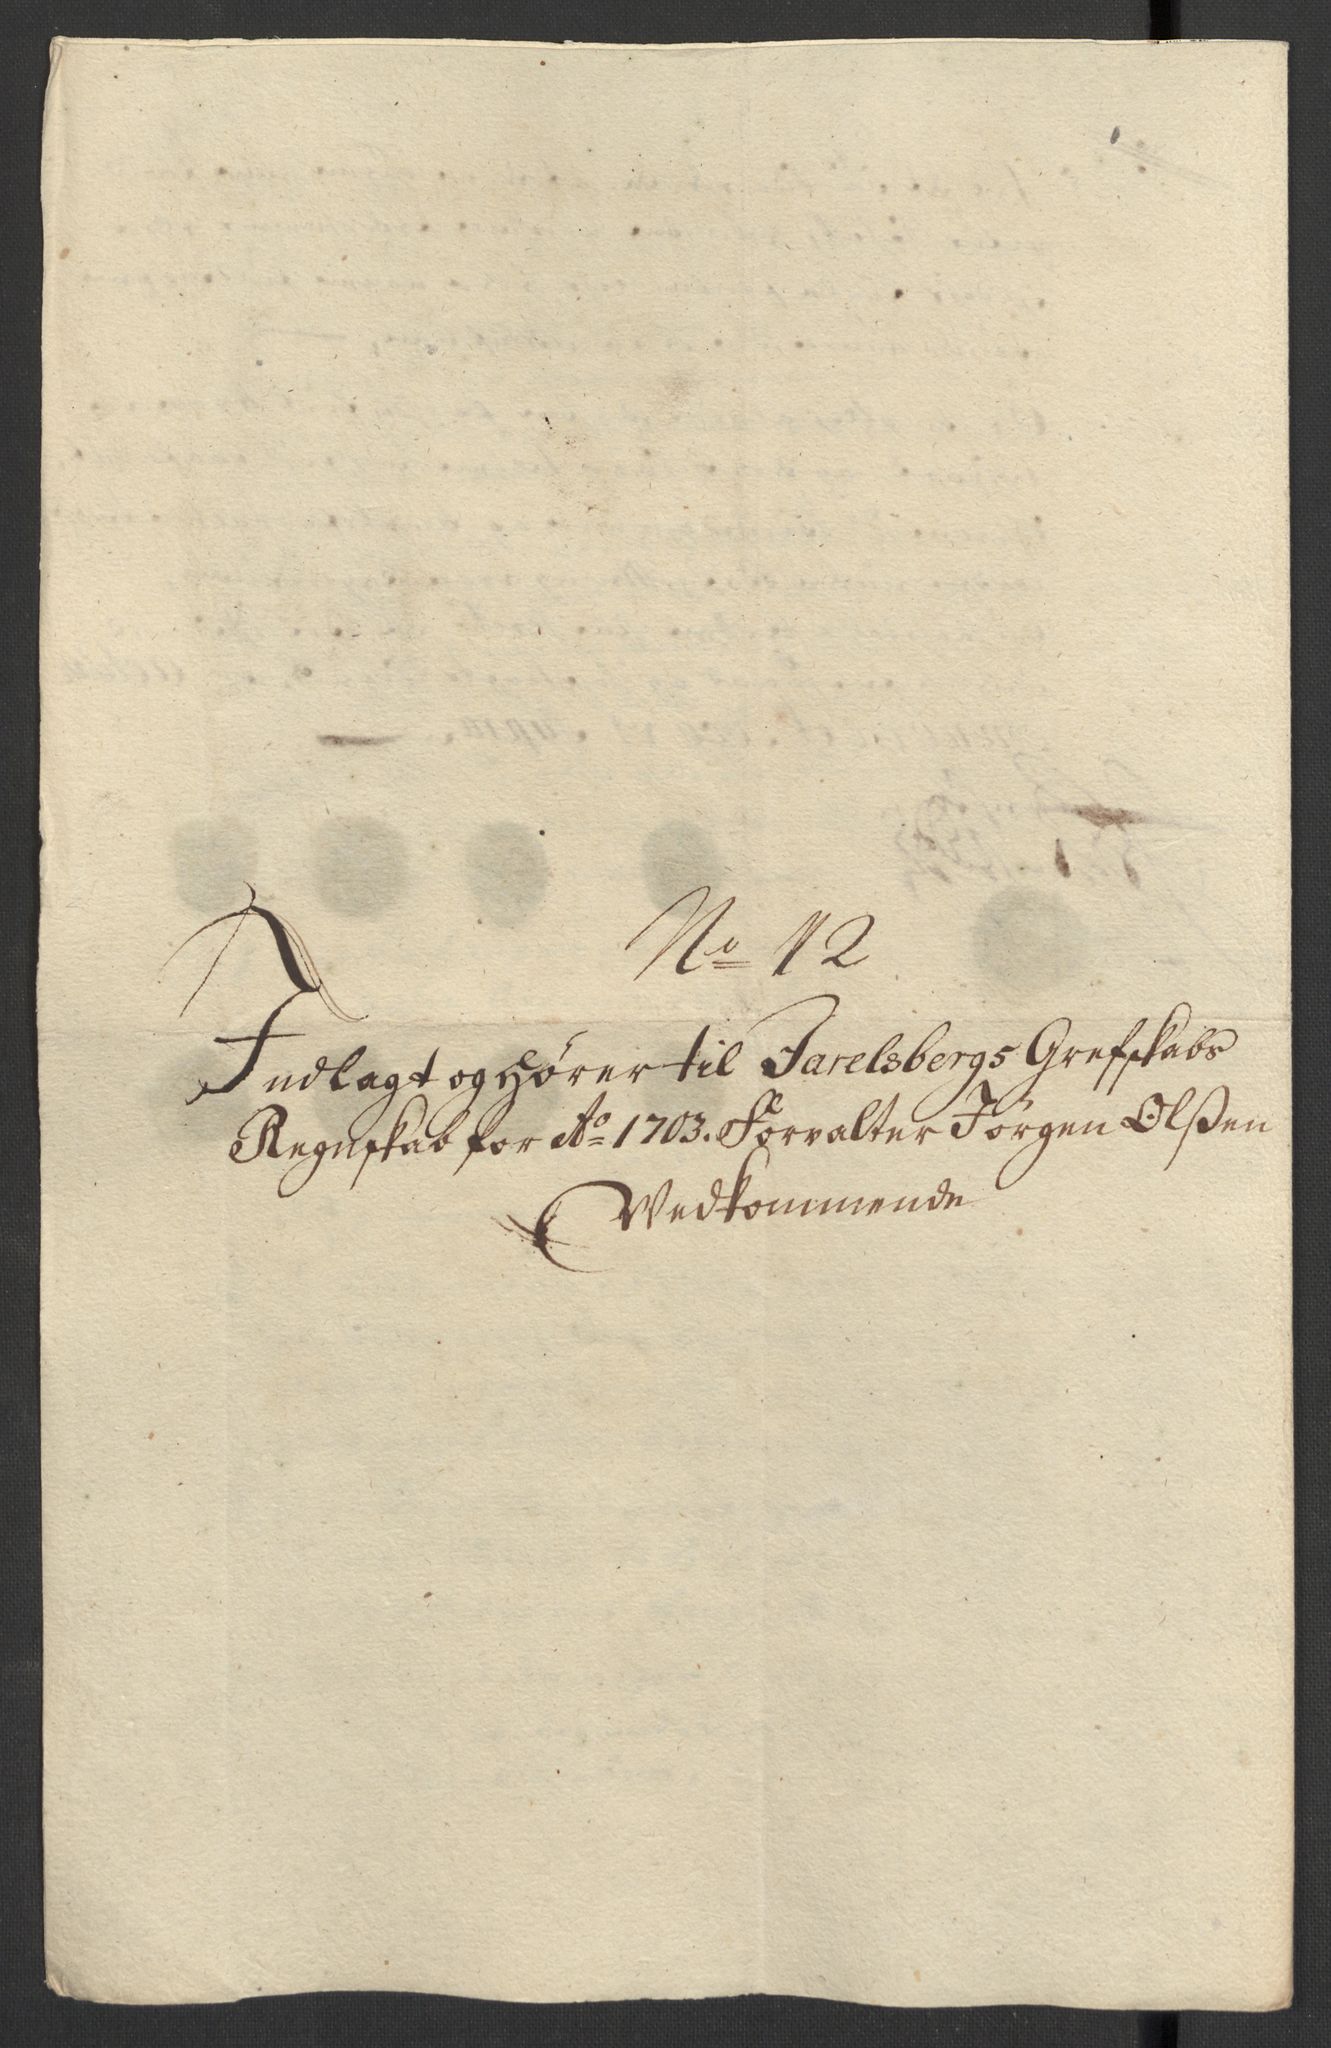 No 12
Indlagt og hører til Jarelsbergs Grefskabs
Regnskab for Ao 1703. Forvalter Jørgen Olßen
Vedkommende